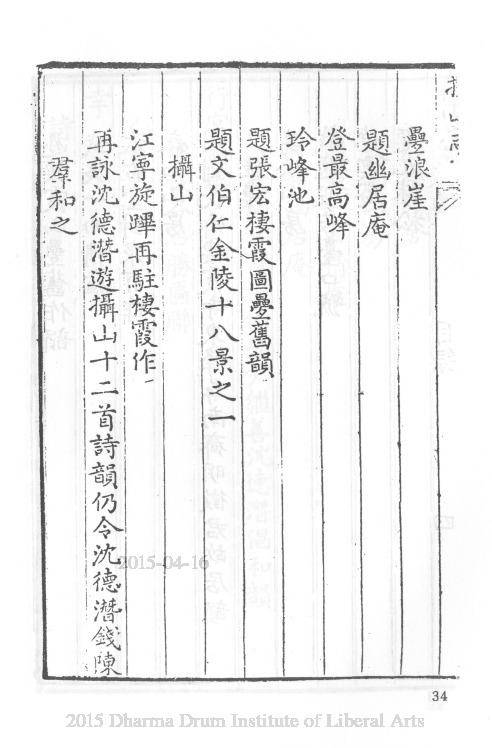 疊浪崖
題幽居庵
登最高峰
玲峰池
題張宏棲霞圖疊舊韻
題文伯仁金陵十八景之一
攝山
江寧旋蹕再駐棲霞作
再詠沈德潛遊攝山十二首詩韻仍令沈德潛錢陳
羣和之
34
2015-04-16
2015 Dharma Drum Institute of Liberal Arts